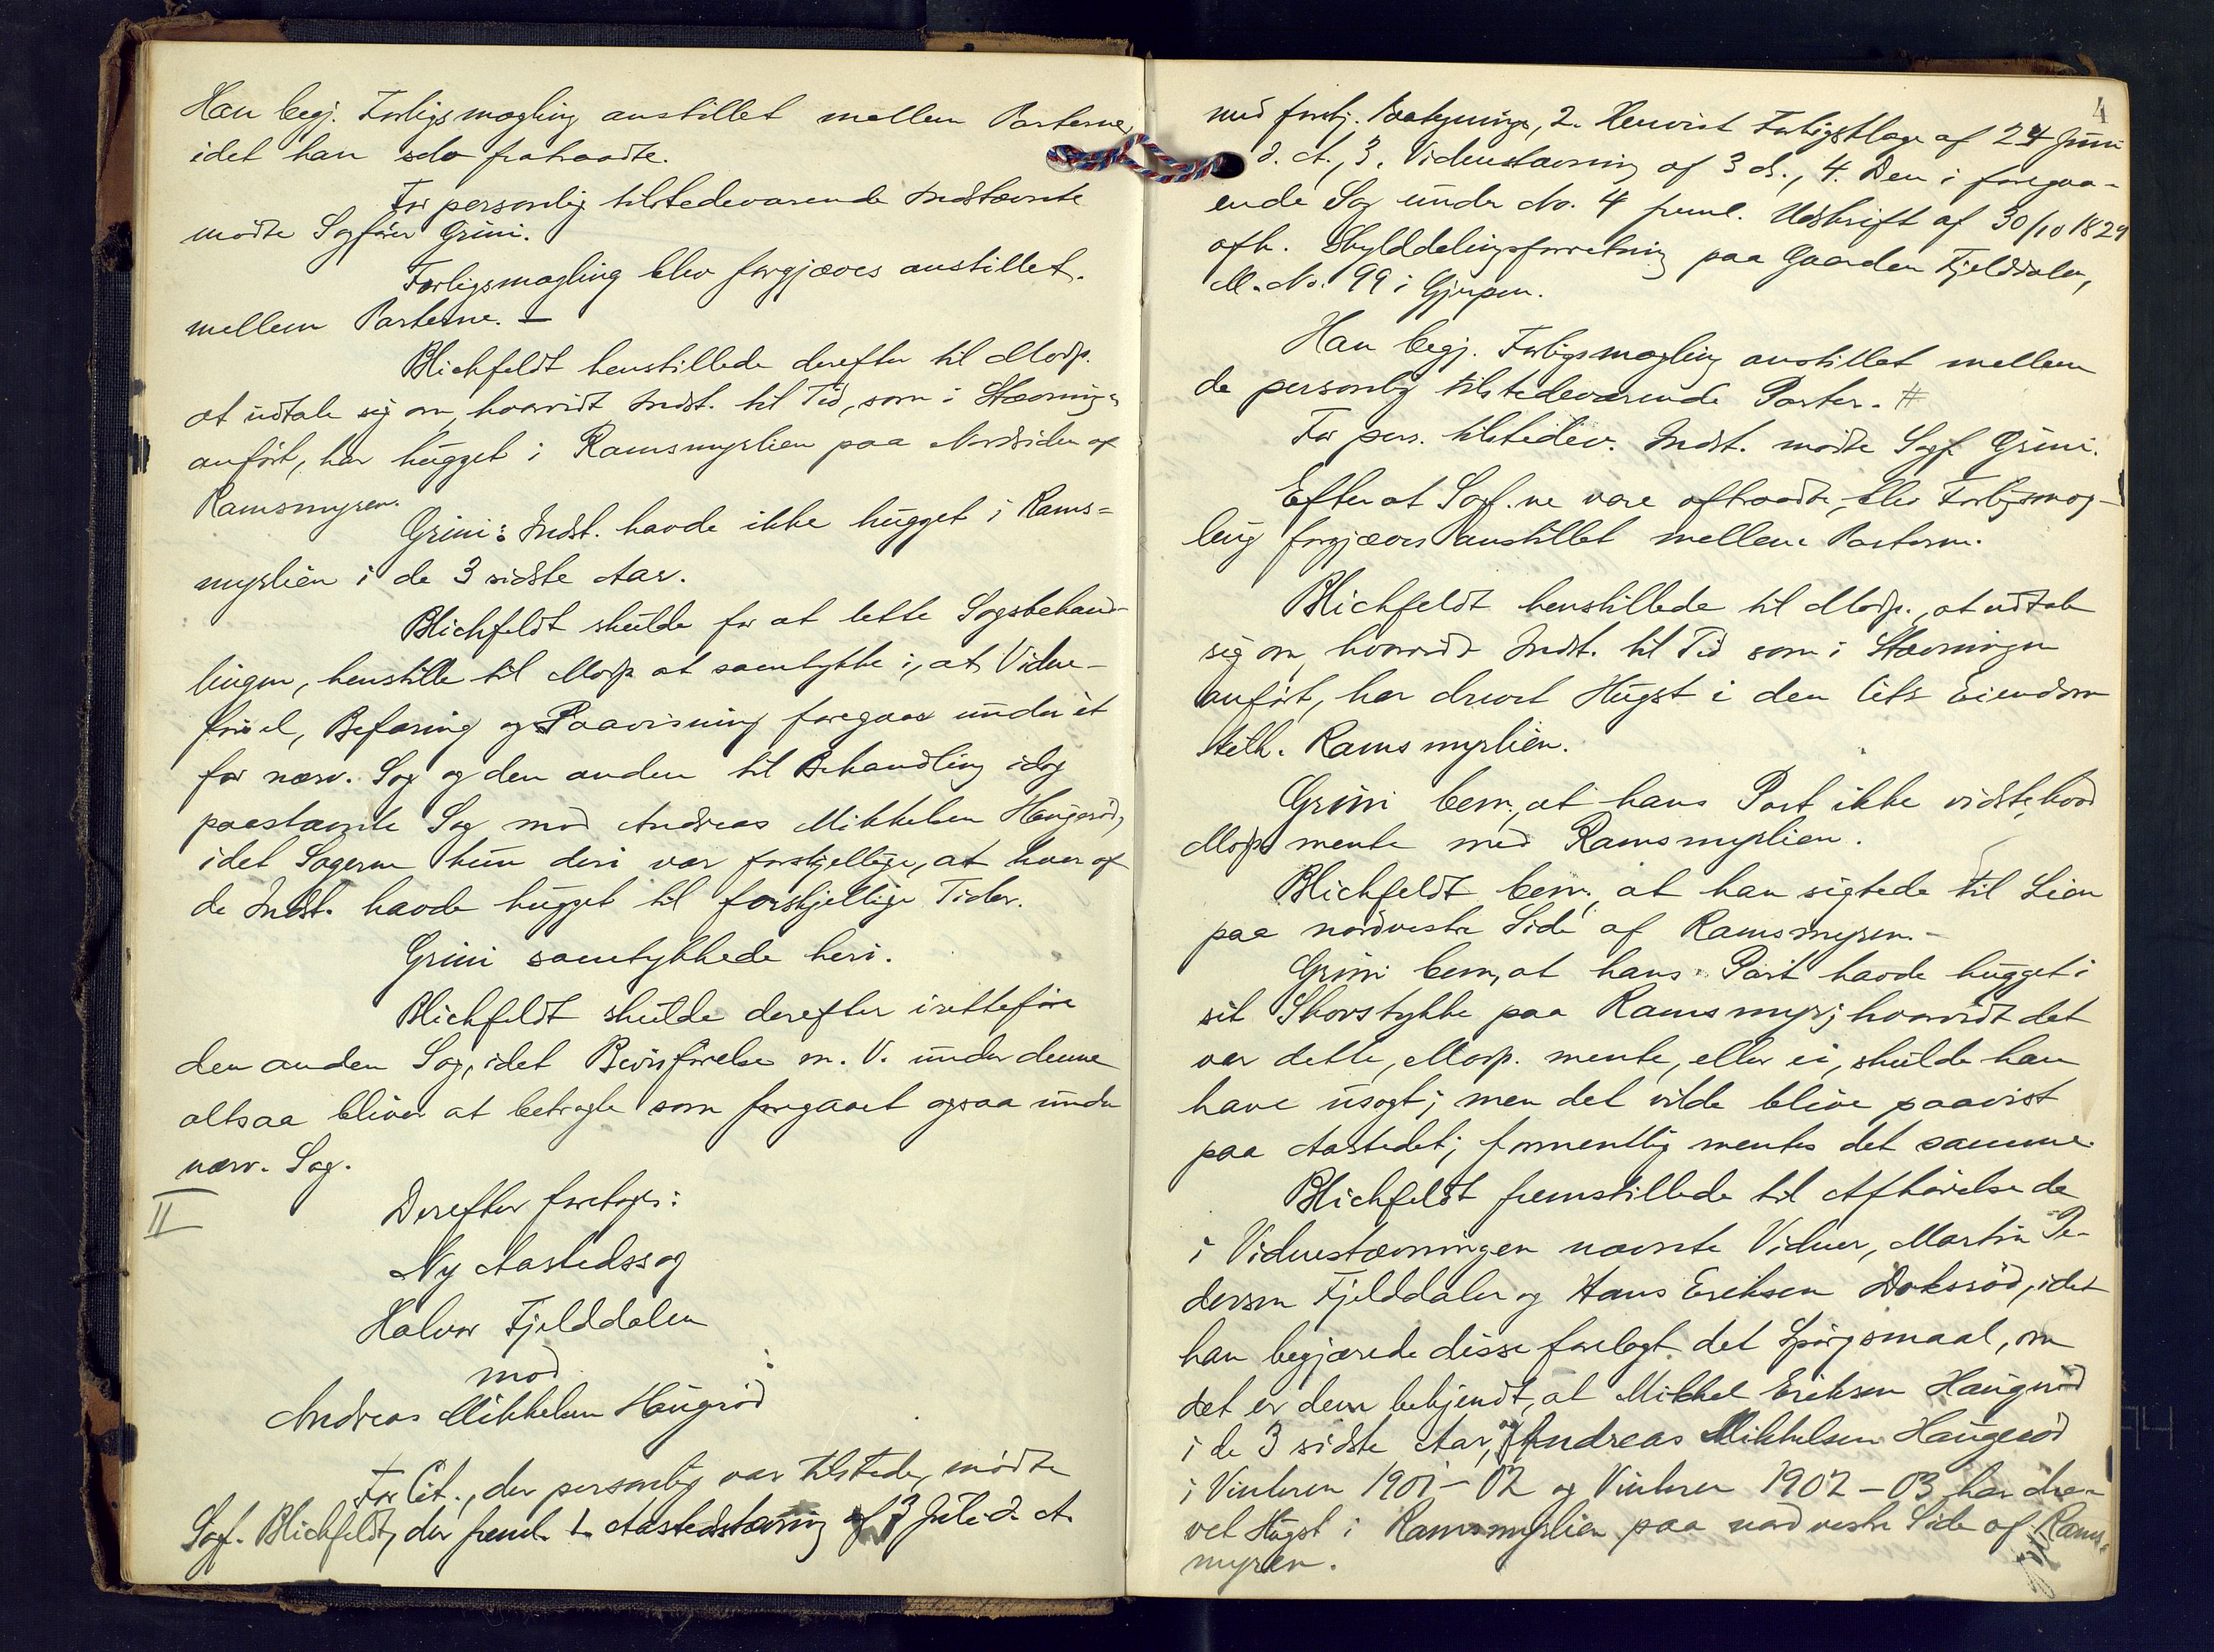 Han begj. Forligsmægling anstillet mellem Parterne,
idet han selv fratraadte.
For personlig tilstedeværende Indstævnte
mödte Sagförer Grini.
Forligsmægling blev forgjæves anstillet
mellem Parterne. —
Blichfeldt henstillede derefter til Modp.
at udtale sig om, hvorvidt Indst. til Tid, som i Stævningen
anfört, har hugget i Ramsmyrlien paa Nordsiden af
Ramsmyren.
Grini: Indst. havde ikke hugget i Rams=
myrlien i de 3 sidste Aar.
Blichfeldt skulde for at lette Sagsbehand-
lingen, henstille til Modp. at samtykke i, at Vidne-
försel, Befaring og Paavisning foregaar under èt
for nærv. Sag og den anden til Behandling idag
paastævnte Sag mod Andreas Mikkelsen Haugeröd,
idet Sagerne kun deri var forskjellige, at hver af
de Indst. havde hugget til forskjellige Tider.
Grini samtykkede heri.
Blichfeldt skulde derefter iretteföre
den anden Sag, idet Bevisförelse m. V. under denne
altsaa bliver at betragte som foregaaet ogsaa under
nærv. Sag.
II
Derefter foretoges:
Ny Aastedssag
Halvor Fjelddalen
mod
Andreas Mikkelsen Haugröd
For Cit., der personlig var tilstede, mödte
Sagf. Blichfeldt, der freml. 1. Aastedstævning af 3 Juli d. A.
4
med forkj. Paategninge, 2. Henvist Forligsklage af 24 Juni
d. A., 3. Vidnestævning af 3 ds., 4. Den i foregaa-
ende Sag under No. 4 freml. Udskrift af 30/10 1829
afh. Skylddelingsforretning paa Gaarden Fjelddalen,
M. No. 99 i Gjerpen.
Han begj. Forligsmægling anstillet mellem
de personlig tilstedeværende Parter. #
For pers. tilstedev. Indst. mödte Sagf. Grini.
Efter at Sagf.ne vare aftraadte, blev Forligsmæg-
ling forgjæves anstillet mellem Parterne.
Blichfeldt henstillede til Modp., at udtale
sig om, hvorvidt Indst. til Tid som i Stævningen
anfört, har drevet Hugst i den Cits Eiendom
tilh. Ramsmyrlien.
Grini bem., at hans Part ikke vidste, hvad
Modp. mente med Ramsmyrlien.
Blichfeldt bem., at han sigtede til Lien
paa nordvestre Side af Ramsmyren. –
Grini bem., at hans Part havde hugget i
sit Skovstykke paa Ramsmyr; hvorvidt det
var dette, Modp. mente, eller ei, skulde han
have usagt; men det vilde blive paavist
paa Aastedet; formentlig mentes det samme.
Blichfeldt fremstillede til Afhörelse de
i Vidnestævningen nævnte Vidner, Martin Pe-
dersen Fjelddalen og Hans Eriksen Doksröd, idet
han begjærede disse forelagt det Spörgsmaal, om
det er dem bekjendt, at Mikkel Eriksen Haugeröd
i de 3 sidste Aar, og Andreas Mikkelsen Haugeröd
i Vinteren 1901–02 og Vinteren 1902–03 har dre-
vet Hugst i Ramsmyrlien paa nordvestre Side af Rams=
myren.